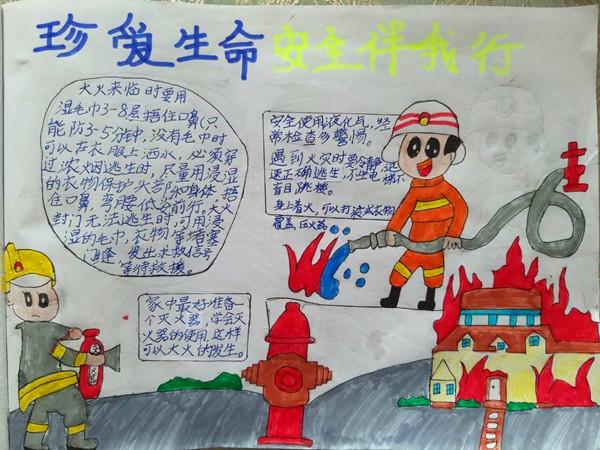 珍爱生命 安全伴我行
大火来临时要用
湿毛巾3-8层捂住口鼻(只
能防3-5分钟,没有毛巾时
可以在衣服上洒水,必须穿
过浓烟逃生时,尽量用浸湿
的衣物保护头部和身体 捂
住口鼻 弯腰低姿前行。大火
封门无法逃生时,可用浸
湿的毛巾,衣物等堵塞
门缝 发出求救信号
等待救援。
安全使用液化气,经
常检查多警惕。
遇到火灾时要冷静,迅
速正确逃生,不坐电梯不
盲目跳楼。
身上着火,可以打滚或衣物
覆盖
家中最好准备一
个灭火器,学会灭
火器的使用,这样
可以大火的发生。